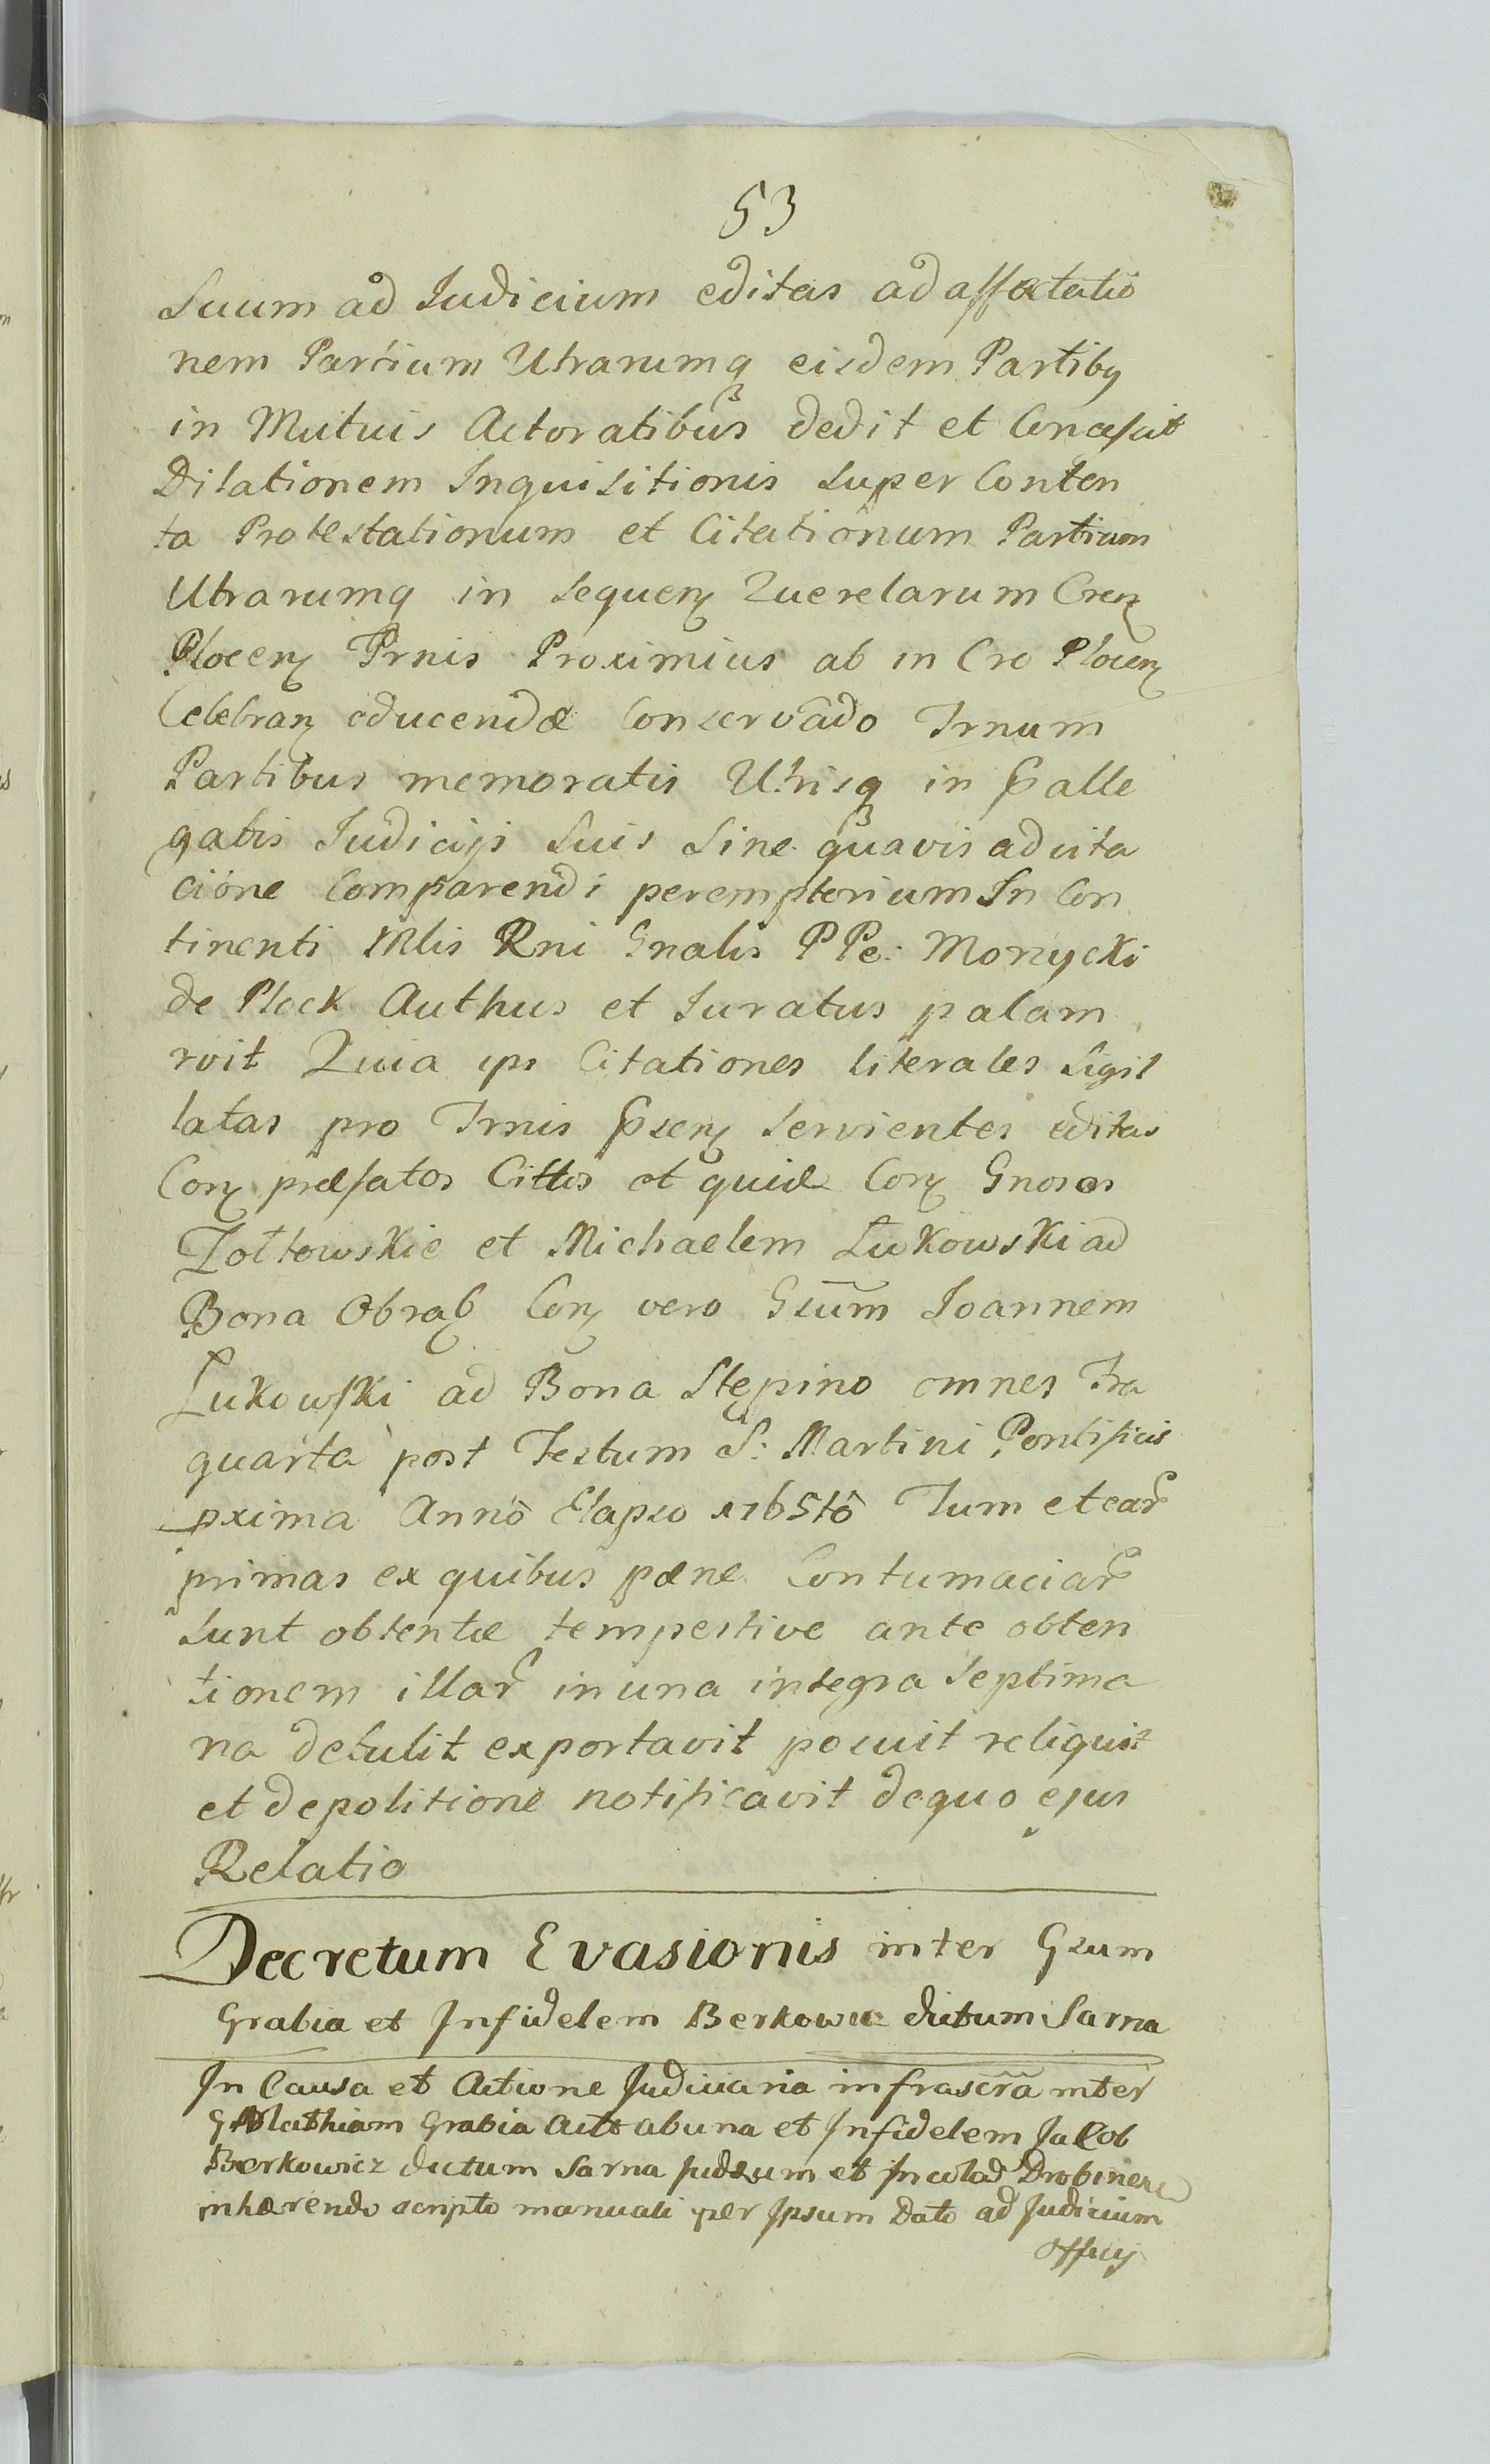 53
Suum ad Judicium editas ad affectatio
nem Parcium Utrarumq eisdem Partibq
in Mutuis Actoratibus dedit et Concessit
Dilationem Inquisitionis super Conten
ta Protestationum et Citationum Partium
Utrarumq in sequenz Querelarum Crenz
Plocenz Trnis Proximius ab in Cro Plocenz
Celebranz educendæ Conservado Trnum
Partibus memoratis Utrisq in Palle
gatis Judicijs Suis Sine quavis adcita
cione Comparendi peremptorium In Con
tinenti Mlis Rni Gnalis PPe: Morzycki
de Plock Authus et Juratus palam
rvit Quia ips Citationes literales Sigil
latas pro Trnis Psenz Servientes editas
Conz præfatos Cittos et quidē Conz Gnosos
Zołtowskie et Michaelem Łukowski ad
Bona Obrąb Conz vero Gsum Joannem
Łukowski ad Bona Stępino omnes Fra
quarta post Festum S: Martini Pontificis
pxima Anno Elapso 1765to Tum et ear
primas ex quibus pæne Contumaciar
sunt obtentæ tempestive ante obten
tionem illar in una integra Septima
na detulit exportavit posuit reliquit
et de positione notificavit de quo ejus
Relatio
Decretum Evasionis inter Gsum
Grabia et Infidelem Berkowicz dictum Sarna
In Causa et Actione Judiciaria infrascra inter
G Mathiam Grabia Act ab una et Infidelem Jacob
Berkowicz dictum Sarna Judæum et Incolad Drobinens
inhærendo scripto manuali per Ipsum Dato ad Judicium
Officij